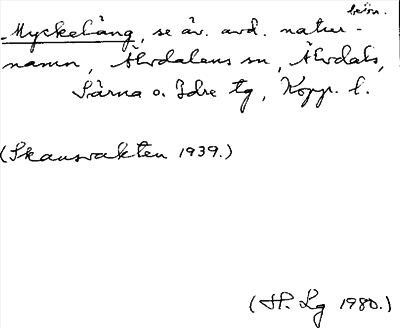 bein.
Myckeläng, se äv. avd. natur-
namn, Älvdalens sn, Älvdals,
Särna o. Idre tg, Kopp. l.
(Skansvakten 1939.)
(H. Lg 1980.)